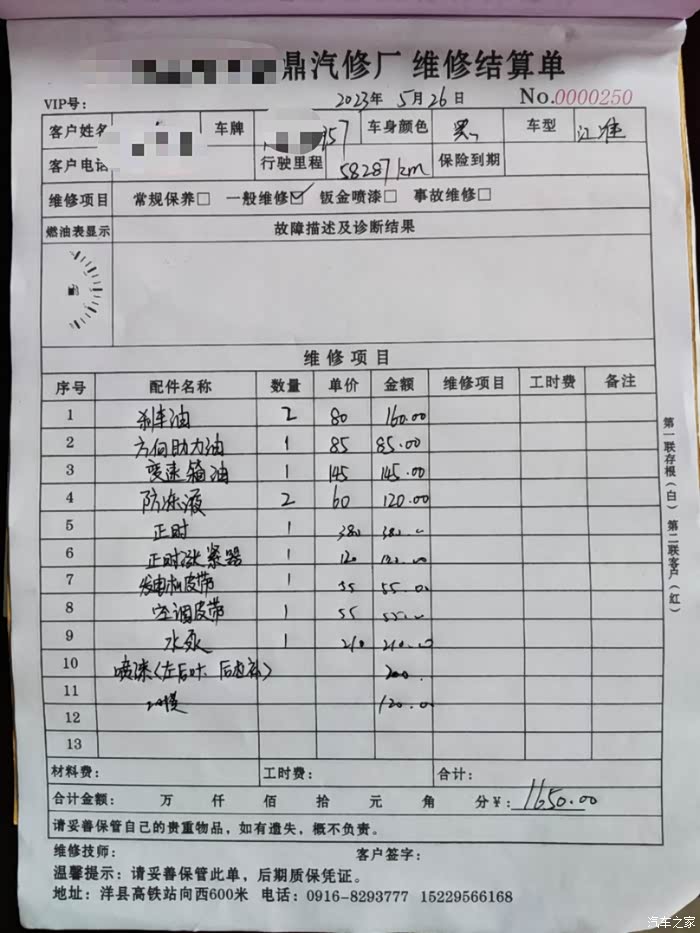 鼎汽修厂 维修结算单
VIP号: 2023年 5月26日 No.0000250
客户姓名 车牌 57 车身颜色 黑 车型 江淮
客户电话 行驶里程 58287km 保险到期
维修项目 常规保养□ 一般维修☑ 钣金喷漆□ 事故维修□
燃油表显示 故障描述及诊断结果
维修项目
序号 配件名称 数量 单价 金额 维修项目 工时费 备注
1 刹车油 2 80 160.00
2 方向助力油 1 85 85.00
3 变速箱油 1 145 145.00
4 防冻液 2 60 120.00
5 正时 1 380 380.00
6 正时涨紧器 1 120 120.00
7 发电机皮带 1 55 55.00
8 空调皮带 1 55 55.00
9 水泵 1 210 210.00
10 喷漆(左后叶、后) 200
11
12 120.00
13
材料费: 工时费: 合计:
合计金额: 万 仟 佰 拾 元 角 分¥: 1650.00
请妥善保管自己的贵重物品，如有遗失，概不负责。
维修技师: 客户签字:
温馨提示: 请妥善保管此单，后期质保凭证。
地址: 洋县高铁站向西600米 电话: 0916-8293777 15229566168
第一联存根(白) 第二联客户(红)
汽车之家